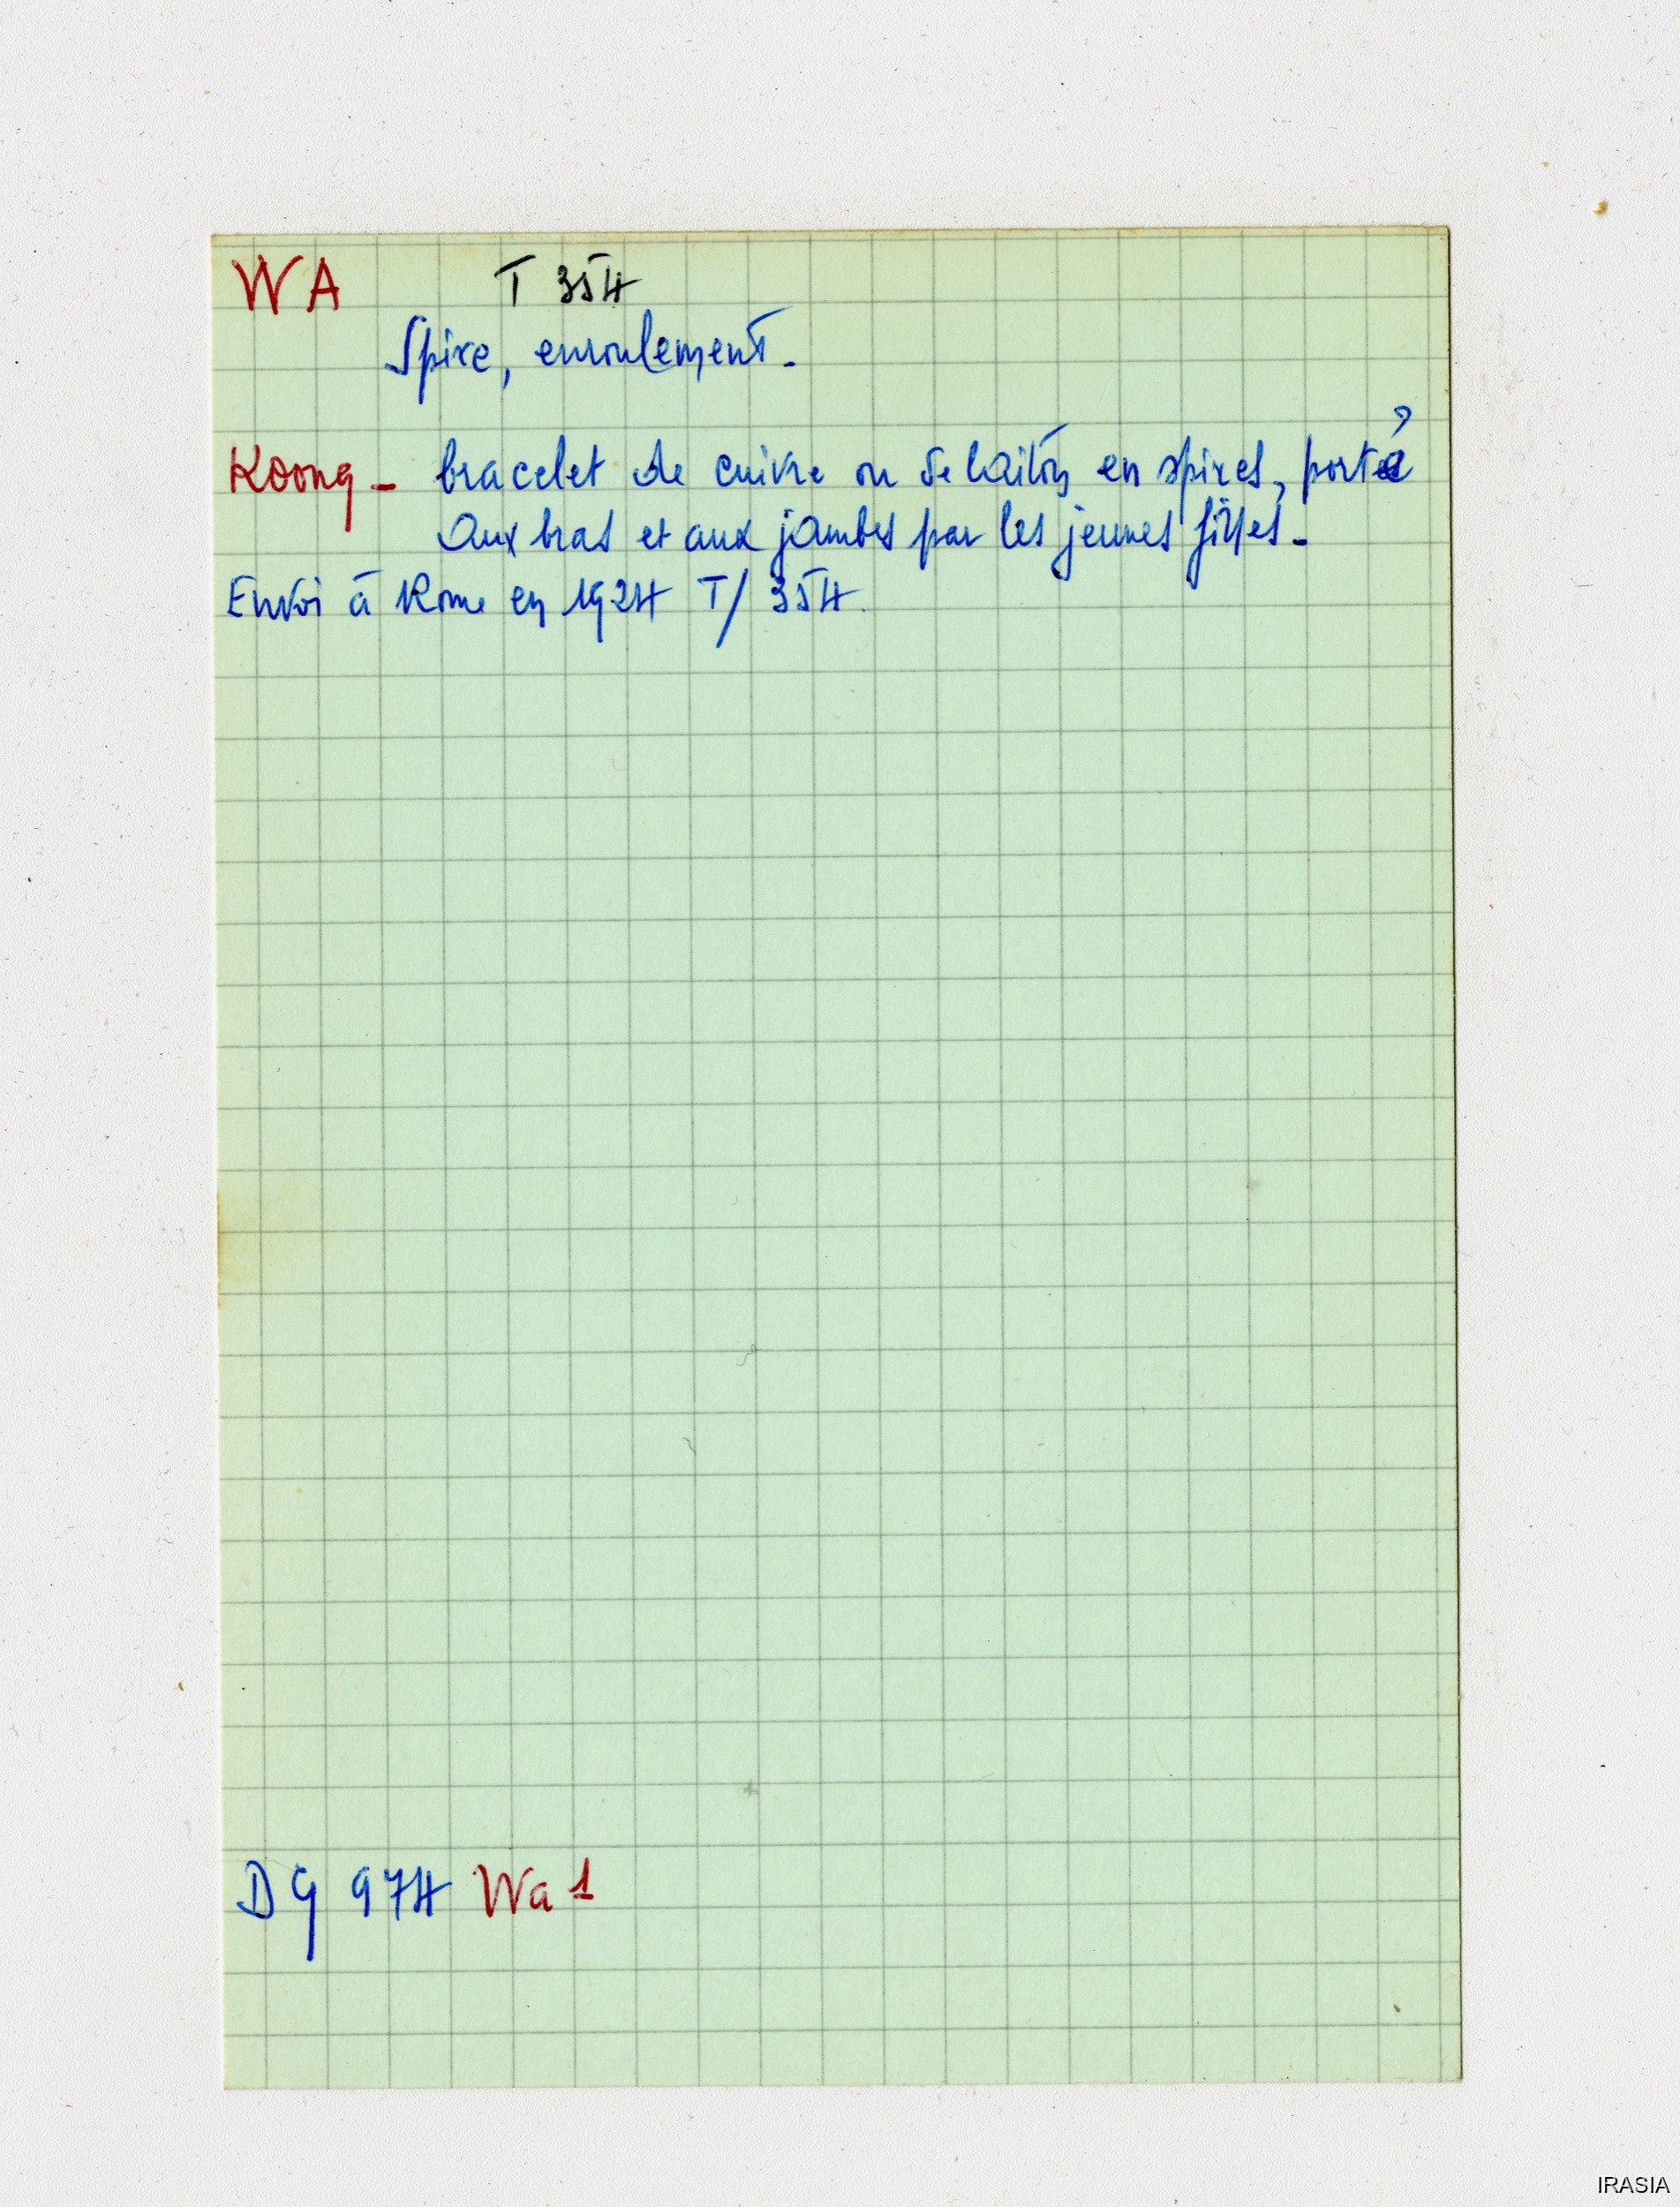 WA T 354
Spire, enroulement.
Koong - bracelet de cuivre ou de laiton en spires, porté
aux bras et aux jambes par les jeunes filles -
Envoi à Rome en 1924 T/ 354.
DG 974 Wa 1
IRASIA